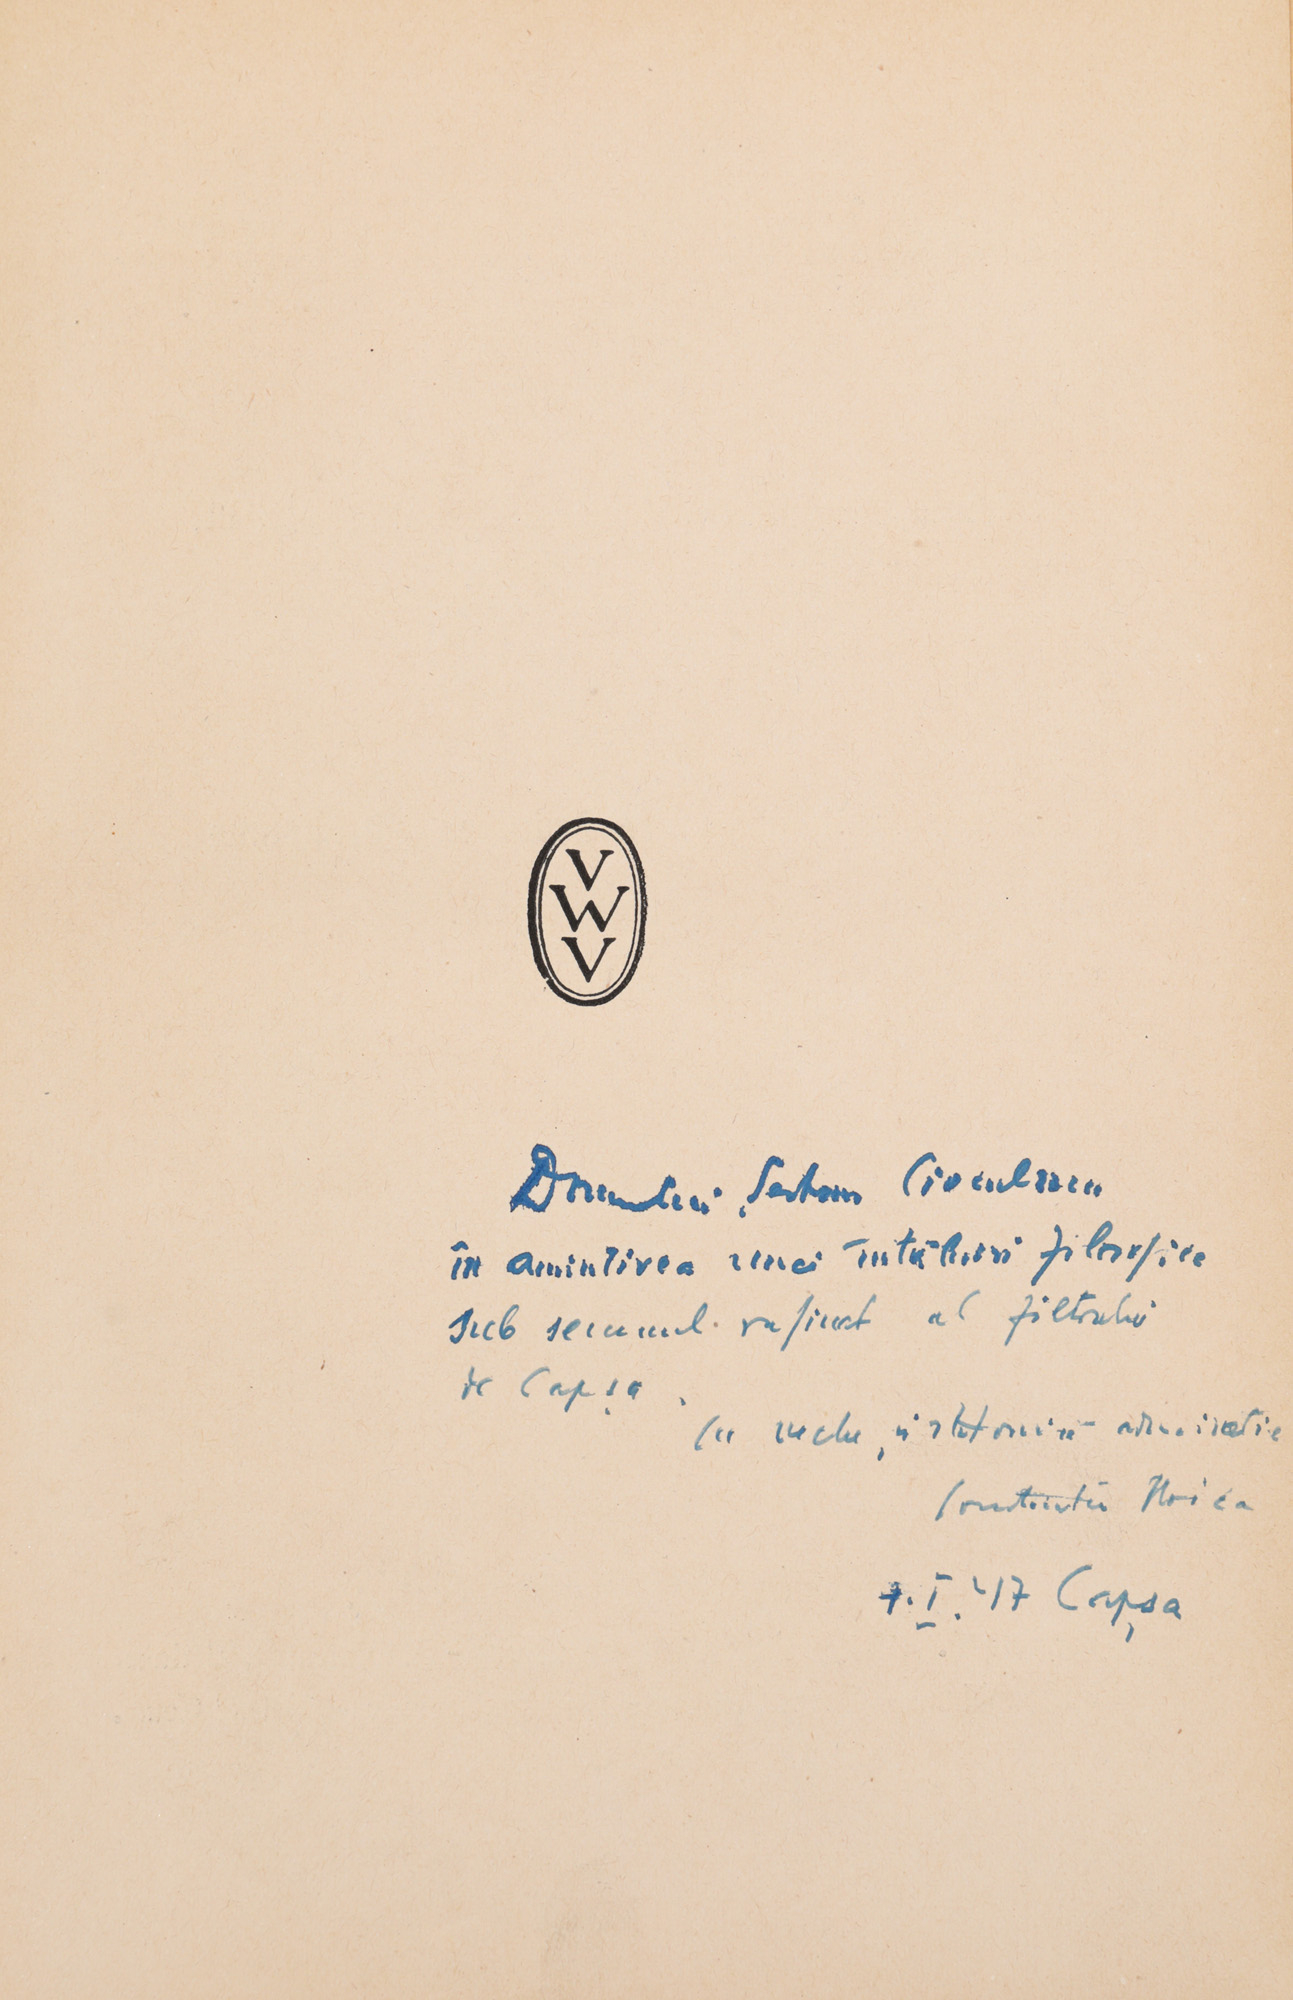 V
W
V
Domnului Șerban Cioculescu
în amintirea unei întâlniri filosofice
sub semnul rafinat al filtrului
de Capșa.
Cu veche și statornică admirație
Constantin Noica
7.I.'47 Capșa